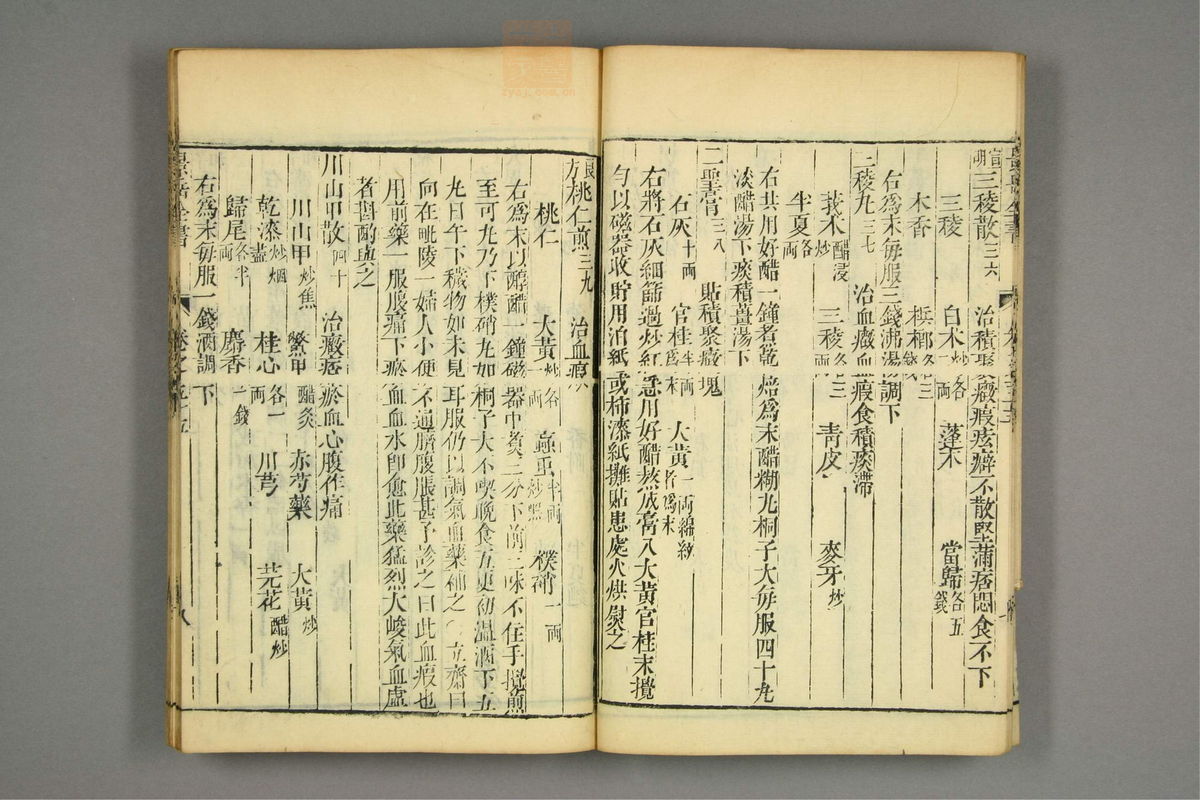 宣明三稜散三六 治積聚癥瘕痃癖不散堅滿痞悶食不下
三稜 白朮炒各一両 蓬朮 當歸各五錢
木香 檳榔各三錢
右為末每服三錢沸湯調下
三稜丸三七 治血癥血瘕食積痰滯
莪朮醋浸炒 三稜各三両 青皮 麥牙炒
半夏各一両
右共用好醋一鐘煮乾焙為末醋糊丸桐子大每服四十丸
淡醋湯下痰積薑湯下
二聖膏三八 貼積聚癥塊
石灰十両 官桂半両為末 大黃一両綿紗
右將石灰細篩過炒紅急用好醋熬成膏入大黃官桂末攪
勻以磁器收貯用泊紙或柿漆紙攤貼患處火烘熨之
良方桃仁煎三九 治血瘕
桃仁 大黃炒各一両 䖟虫半両炒黑 樸硝一両
右為末以醇醋一鐘磁器中煑三分下前三味不住手攪煎
至可丸乃下樸硝丸如桐子大不喫晚食五更初温酒下五
丸日午下穢物如未見耳服仍以調氣血藥補之 立齋曰
向在毗陵一婦人小便不通臍腹脹甚予診之曰此血瘕也
用前藥一服腹痛下瘀血血水即愈此藥猛烈大峻氣血虛
者斟酌與之
川山甲散四十 治癥痞瘀血心腹作痛
川山甲炒焦 鱉甲醋炙 赤芍藥 大黃炒
乾漆炒烟盡 桂心各一両 川芎 芫花醋炒
歸尾各半両 麝香一錢
右為末每服一錢酒調下
景岳全書 卷之五十五 八